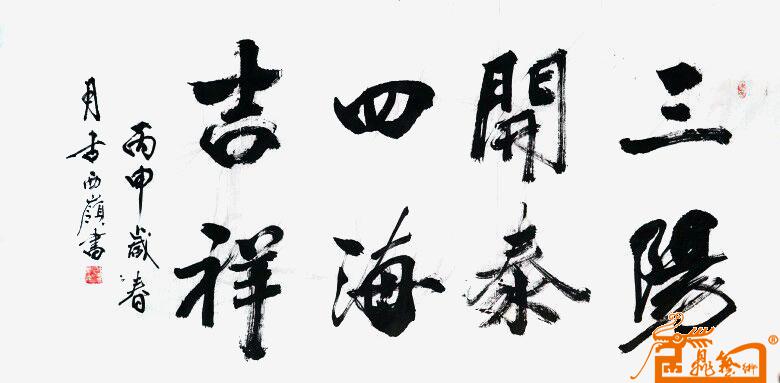 三陽
開泰
四海
吉祥
丙申歲春
月古西嶺書